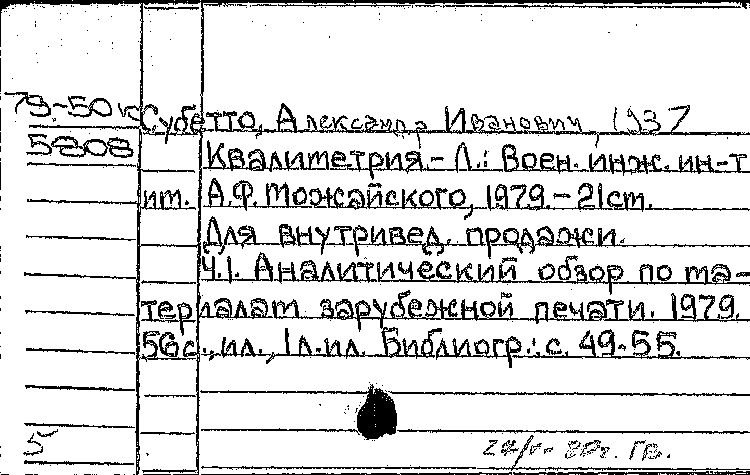 79-50к
5808
Субетто, Александр Иванович, 1937
Квалиметрия.- Л.: Воен. инж. ин-т
им. А.Ф. Можайского, 1979.- 21см.
Для внутривед. продажи.
Ч.1. Аналитический обзор по ма-
териалам зарубежной печати. 1979.
56с., ил., 1л.ил. Библиогр.: с. 49-55.
5
ГВ.